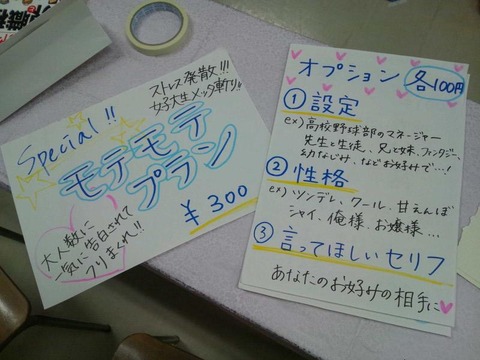 Special!!
ストレス発散!!!
女子大生メッタ斬り!!
モテモテ
プラン
¥300
大人数に
一気に告白されて
フリまくれ!!
オプション 各100円
① 設定
ex) 高校野球部のマネージャー
先生と生徒、兄と妹、ファンタジー、
幼なじみ、などお好みで…!
② 性格
ex) ツンデレ、クール、甘えんぼ
シャイ、俺様、お嬢様…
③ 言ってほしいセリフ
あなたのお好みの相手に